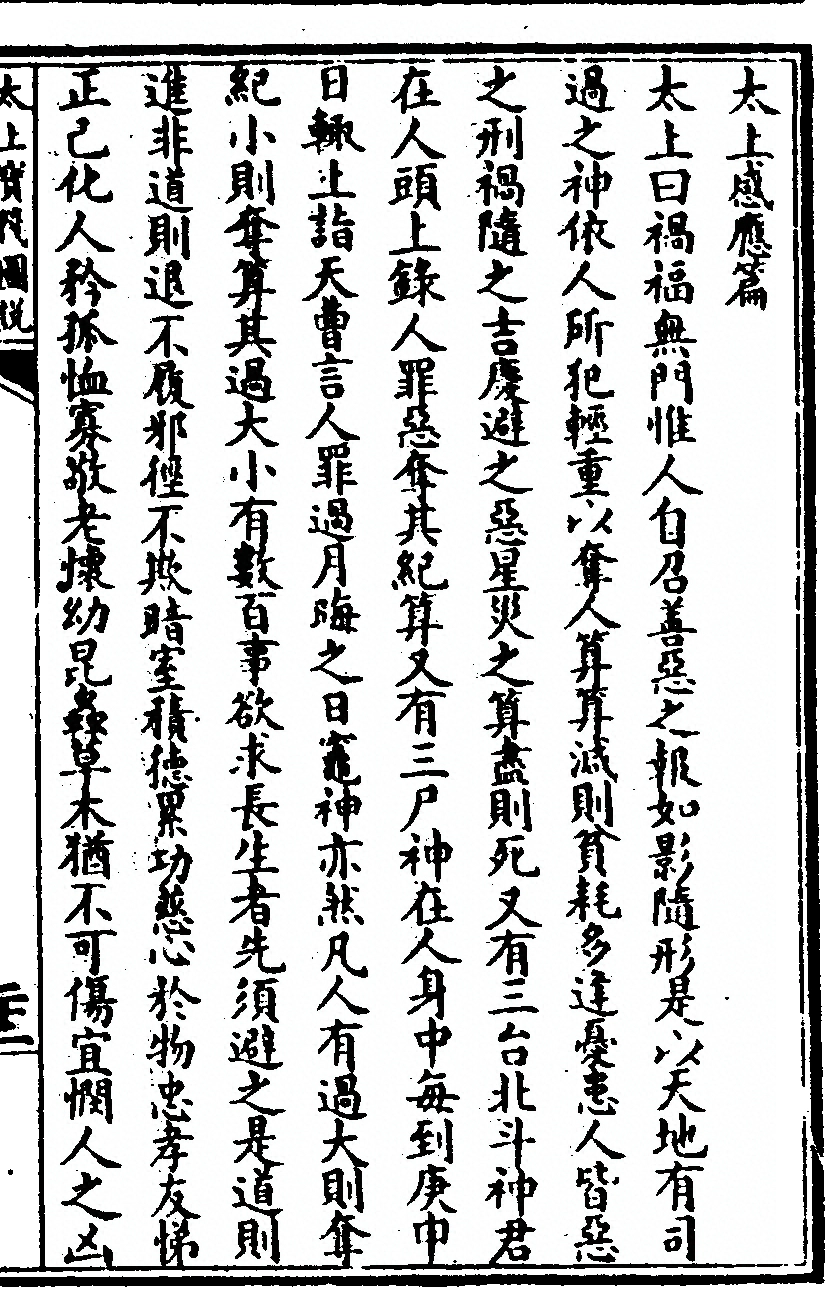 太上感應篇
太上曰禍福無門惟人自召善惡之報如影隨形是以天地有司
過之神依人所犯輕重以奪人算算減則貧耗多逢憂患人皆惡
之刑禍隨之吉慶避之惡星災之算盡則死又有三台北斗神君
在人頭上錄人罪惡奪其紀算又有三尸神在人身中每到庚申
日輙上詣天曹言人罪過月晦之日竈神亦然凡人有過大則奪
紀小則奪算其過大小有數百事欲求長生者先須避之是道則
進非道則退不履邪徑不欺暗室積德累功慈心於物忠孝友悌
正己化人矜孤恤寡敬老懷幼昆蟲草木猶不可傷宜憫人之凶
太上寶筏圖說